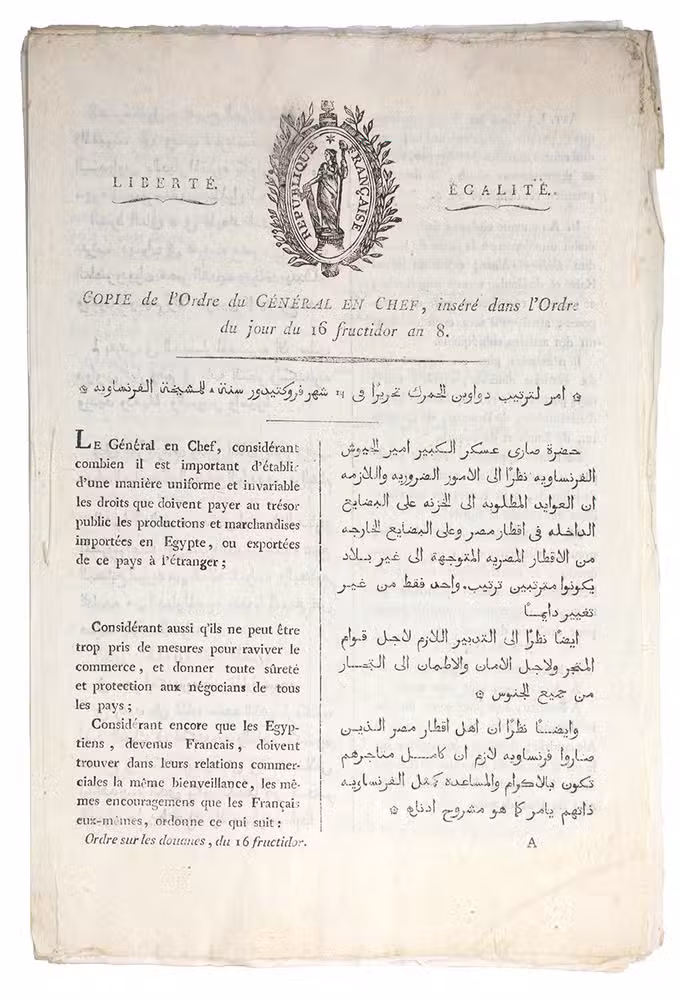 LIBERTÉ.
RÉPUBLIQUE FRANÇAISE
ÉGALITÉ.
COPIE de l'Ordre du GÉNÉRAL EN CHEF, inséré dans l'Ordre
du jour du 16 fructidor an 8.
امر لترتيب دواوين الجمرك تحريرًا فى ١٦ شهر فروكتيدور سنة ٨ للمشيخة الفرنساويه
LE Général en Chef, considérant
combien il est important d'établir
d'une manière uniforme et invariable
les droits que doivent payer au trésor
public les productions et marchandises
importées en Egypte, ou exportées
de ce pays à l'étranger;
Considérant aussi q'ils ne peut être
trop pris de mesures pour raviver le
commerce, et donner toute sûreté
et protection aux négocians de tous
les pays;
Considérant encore que les Egyp-
tiens, devenus Francais, doivent
trouver dans leurs relations commer-
ciales la même bienveillance, les mê-
mes encouragemens que les Français
eux-mêmes, ordonne ce qui suit:
Ordre sur les douanes, du 16 fructidor.
حضرة صارى عسكر الكبير امير الجيوش
الفرنساويه نظرًا الى الامور الضروريه واللازمه
ان العوايد المطلوبه الى الخزنه على البضايع
الداخله فى اقطار مصر وعلى البضايع الخارجه
من الاقطار المصريه المتوجهة الى غير بلاد
يكونوا مترتبين ترتيب واحد فقط من غير
تغيير دايمًا
ايضًا نظرًا الى التدبير اللازم لاجل قوام
المتجر ولاجل الامان والاطمان الى التجار
من جميع الجنوس
وايضًا نظرًا ان اهل اقطار مصر الذين
صاروا فرنساويه لازم ان كامل متاجرهم
تكون بالاكرام والمساعده كمثل الفرنساويه
ذاتهم يامر كما هو مشروح ادناه
A